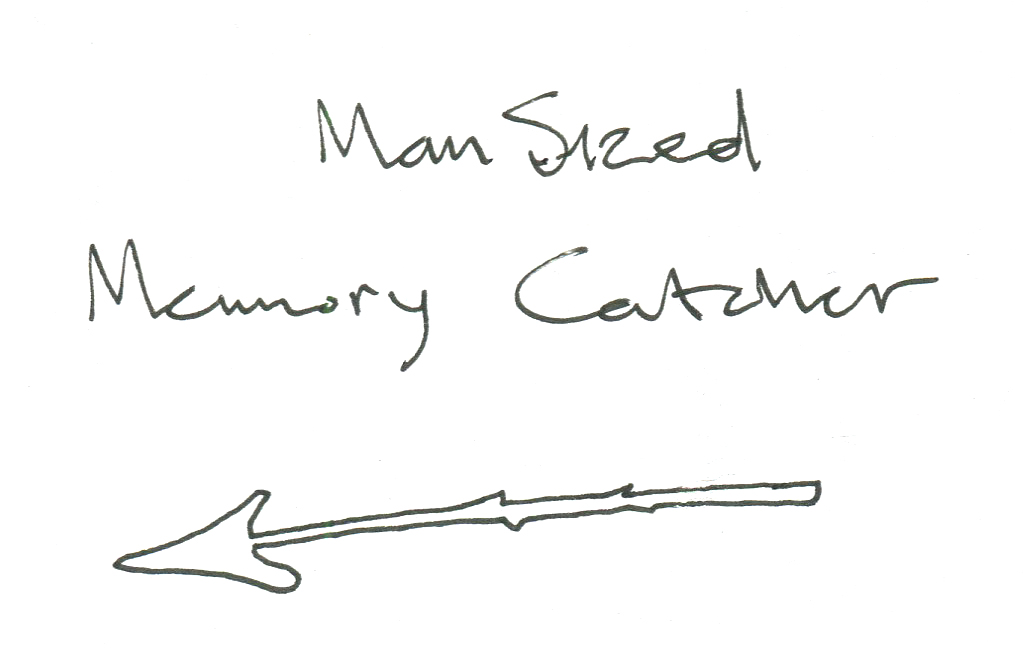 Man Sized
Memory Catcher